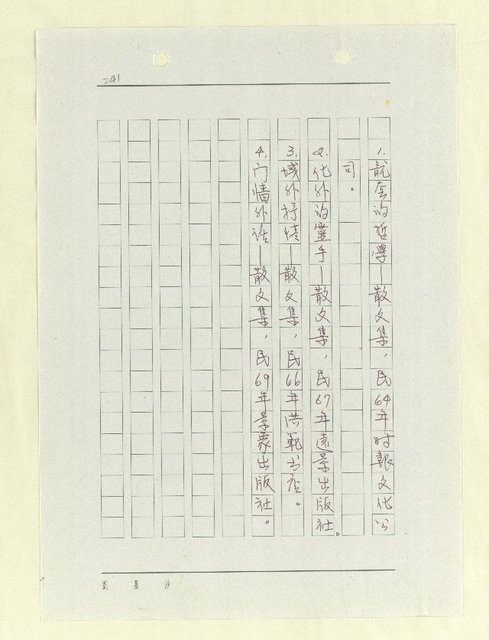 241
1. 龍套的哲學—散文集,民64年时報文化公
司。
2. 化外的手—散文集,民67年遠景出版社。
3. 域外抒情—散文集,民66年洪範书店。
4. 门墻外话—散文集,民69年景象出版社。